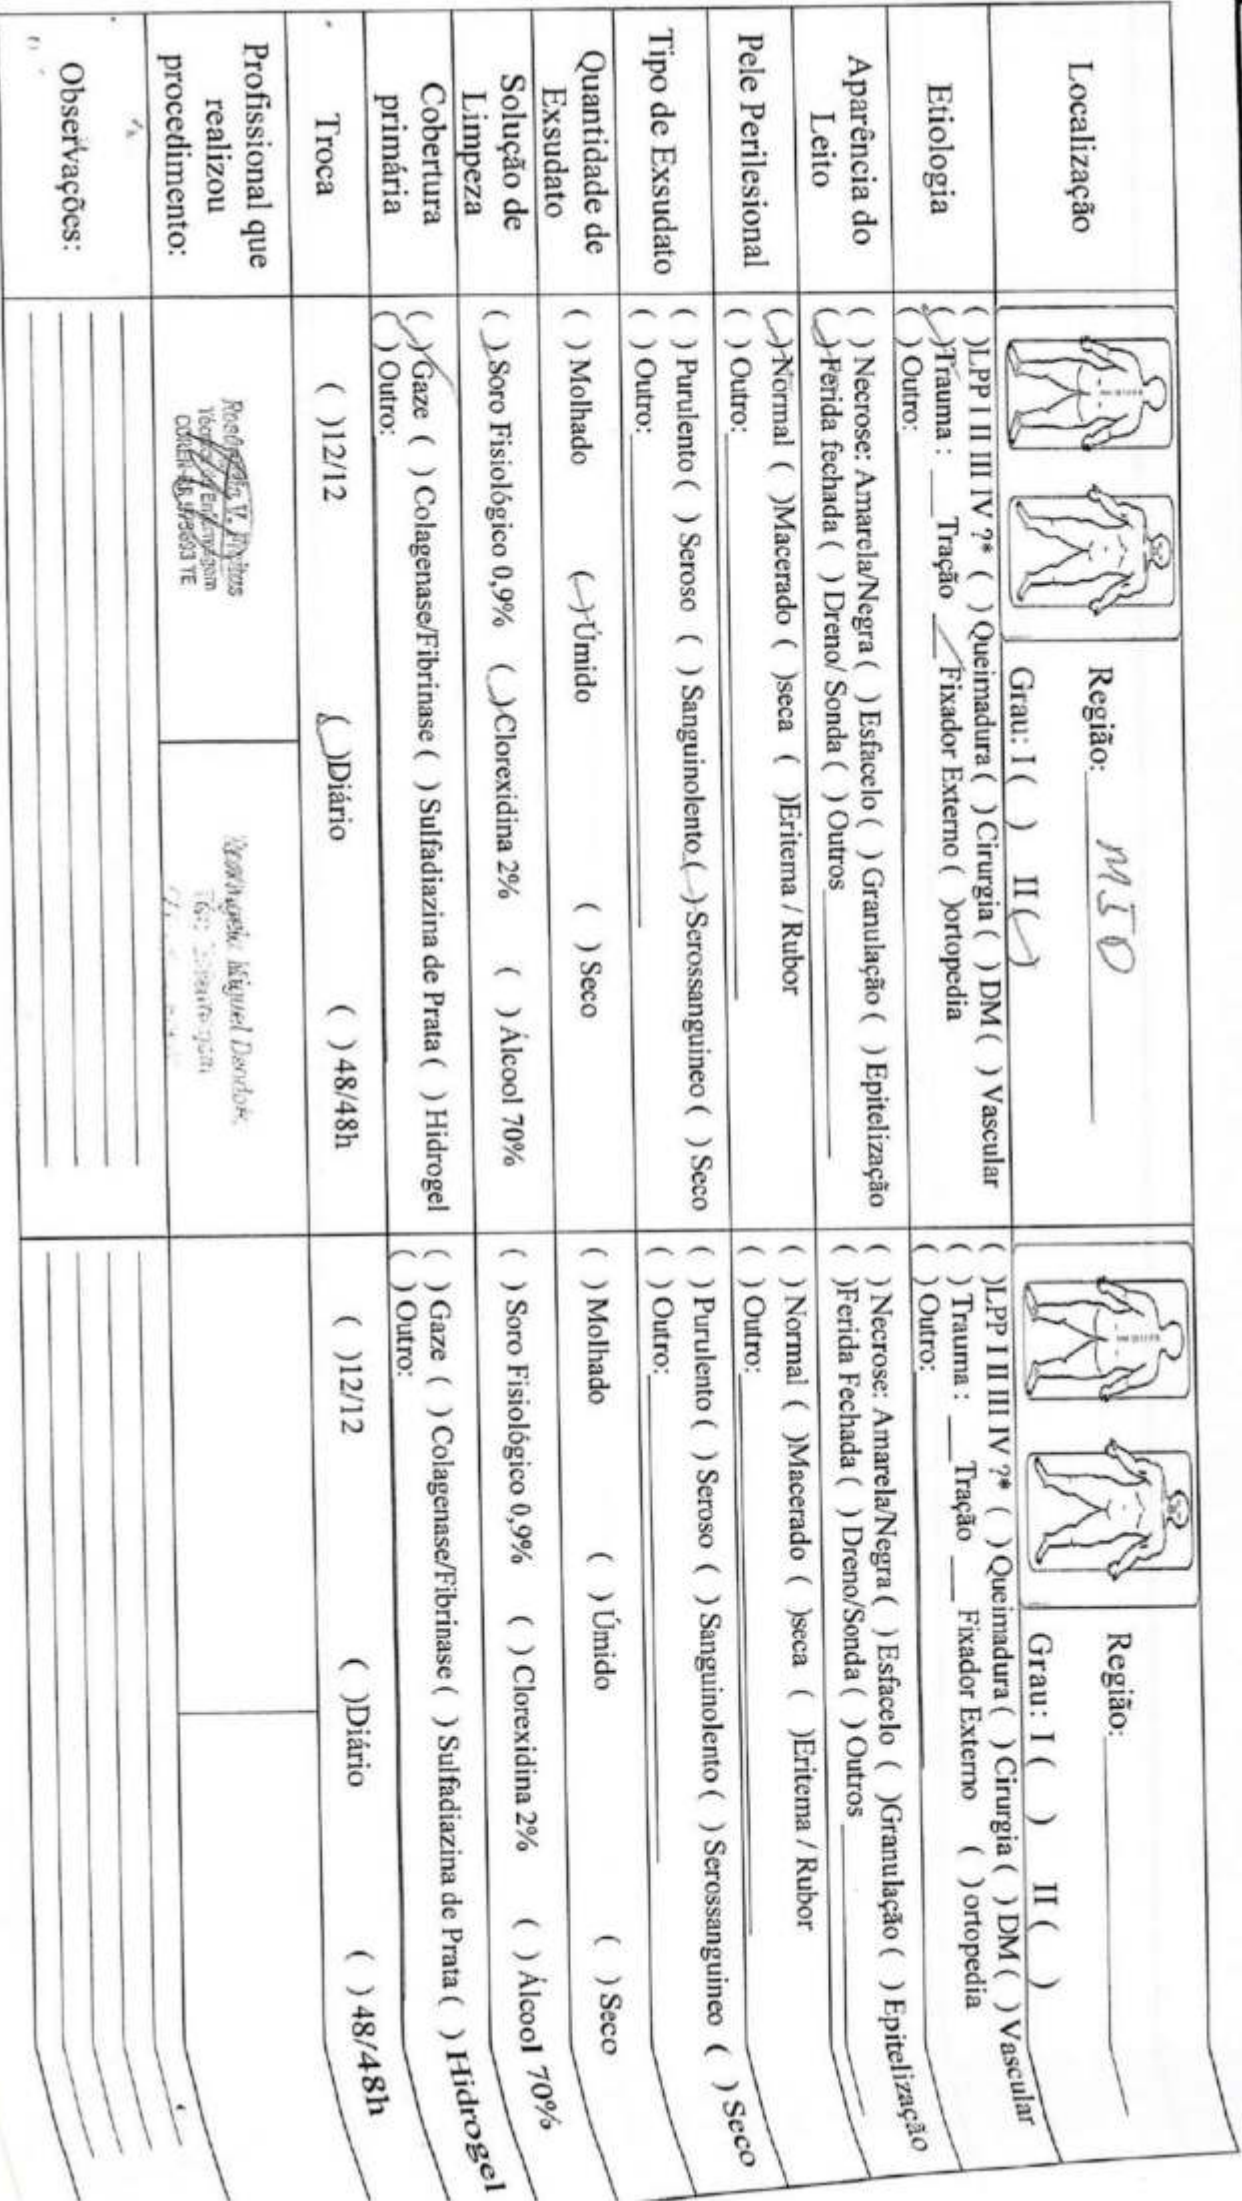 Localização
Região: MID
Grau: I ( ) II ( )
Região:
Grau: I ( ) II ( )
Etiologia
( )LPP I II III IV ?* ( ) Queimadura ( ) Cirurgia ( ) DM ( ) Vascular
( )Trauma : ___ Tração ___ Fixador Externo ( )ortopedia
( ) Outro:
( )LPP I II III IV ?* ( ) Queimadura ( ) Cirurgia ( ) DM ( ) Vascular
( ) Trauma : ___ Tração ___ Fixador Externo ( ) ortopedia
( ) Outro:
Aparência do
Leito
( ) Necrose: Amarela/Negra ( ) Esfacelo ( ) Granulação ( ) Epitelização
( )Ferida fechada ( ) Dreno/ Sonda ( ) Outros
( ) Necrose: Amarela/Negra ( ) Esfacelo ( )Granulação ( ) Epitelização
( )Ferida Fechada ( ) Dreno/Sonda ( ) Outros
Pele Perilesional
( )Normal ( )Macerado ( )seca ( )Eritema / Rubor
( ) Outro:
( ) Normal ( )Macerado ( )seca ( )Eritema / Rubor
( ) Outro:
Tipo de Exsudato
( ) Purulento ( ) Seroso ( ) Sanguinolento ( ) Serossanguineo ( ) Seco
( ) Outro:
( ) Purulento ( ) Seroso ( ) Sanguinolento ( ) Serossanguineo ( ) Seco
( ) Outro:
Quantidade de
Exsudato
( ) Molhado ( )Úmido ( ) Seco
( ) Molhado ( ) Úmido ( ) Seco
Solução de
Limpeza
( ) Soro Fisiológico 0,9% ( )Clorexidina 2% ( ) Álcool 70%
( ) Soro Fisiológico 0,9% ( ) Clorexidina 2% ( ) Álcool 70%
Cobertura
primária
( )Gaze ( ) Colagenase/Fibrinase ( ) Sulfadiazina de Prata ( ) Hidrogel
( ) Outro:
( ) Gaze ( ) Colagenase/Fibrinase ( ) Sulfadiazina de Prata ( ) Hidrogel
( ) Outro:
Troca
( )12/12 ( )Diário ( ) 48/48h
( )12/12 ( )Diário ( ) 48/48h
Profissional que
realizou
procedimento:
V. Freitas
Enfermagem
TE
Miguel
Observações: